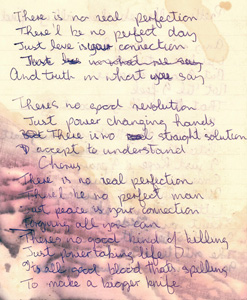 There is no real perfection
There'l be no perfect day
Just love is your connection
And truth in what you say
Theres no good revolution
Just power changing hands
There is no straight solution
accept to understand
Chorus
There is no real perfection
There'l be no perfect man
Just peace is your connection
you can
Theres no good kind of killing
Just power taking life
Its all good blood thats spilling
To make a bigger knife